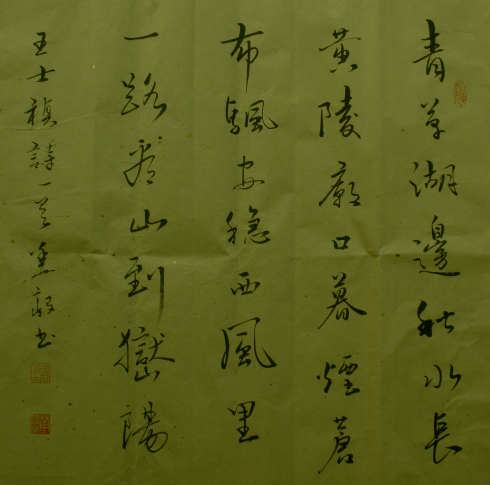 青草湖邊秋水長
黃陵廟口暮煙蒼
布颿安穩西風里
一路看山到嶽陽
王士禎詩一首 書